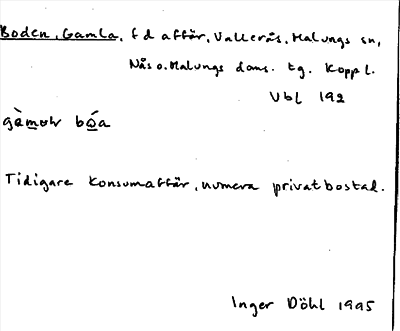 Boden, Gamla, f d affär, Vallerås, Malungs sn,
Nås o. Malungs doms. tg. Koppl.
Vbl 192
gàmohr bóa
Tidigare konsumaffär, numera privatbostad.
Inger Döhl 1995